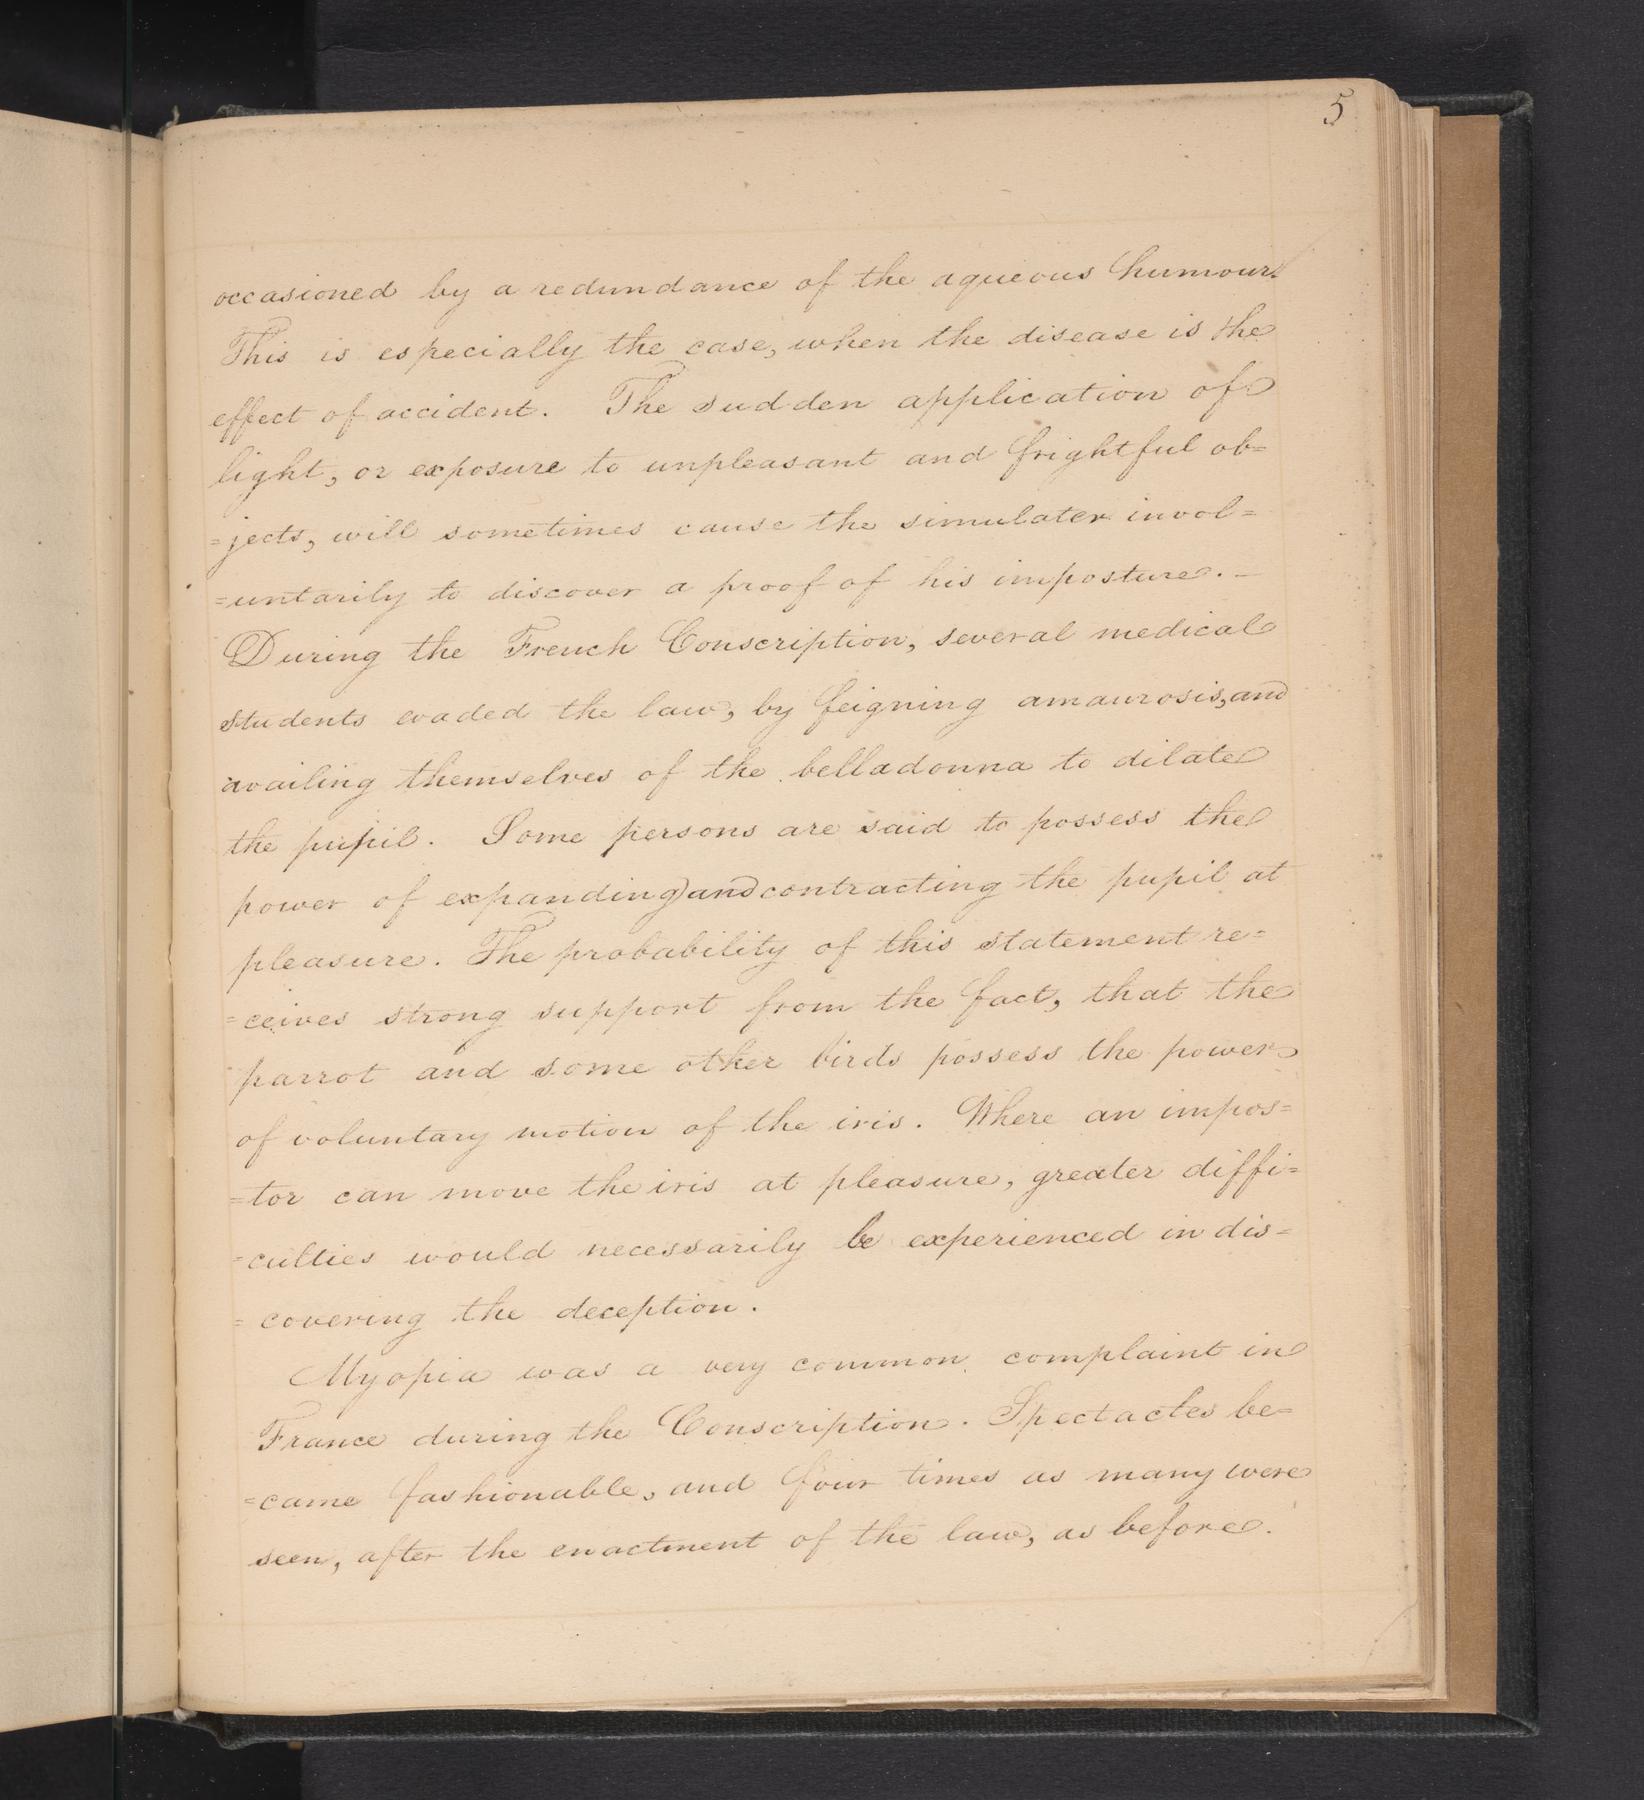 5
occasioned by a redundance of the aqueous humour.
This is especially the case, when the disease is the
effect of accident. The sudden application of
light, or exposure to unpleasant and frightful ob=
=jects, will sometimes cause the simulater invol=
=untarily to discover a proof of his imposture. –
During the French Conscription, several medical
students evaded the law, by feigning amaurosis, and
availing themselves of the belladonna to dilate
the pupil. Some persons are said to possess the
power of expanding and contracting the pupil at
pleasure. The probability of this statement re=
=ceives strong support from the fact, that the
parrot and some other birds possess the power
of voluntary motion of the iris. Where an impos=
=tor can move the iris at pleasure, greater diffi=
=culties would necessarily be experienced in dis=
=covering the deception.
Myopia was a very common complaint in
France during the Conscription. Spectacles be=
=came fashionable, and four times as many were
seen, after the enactment of the law, as before.